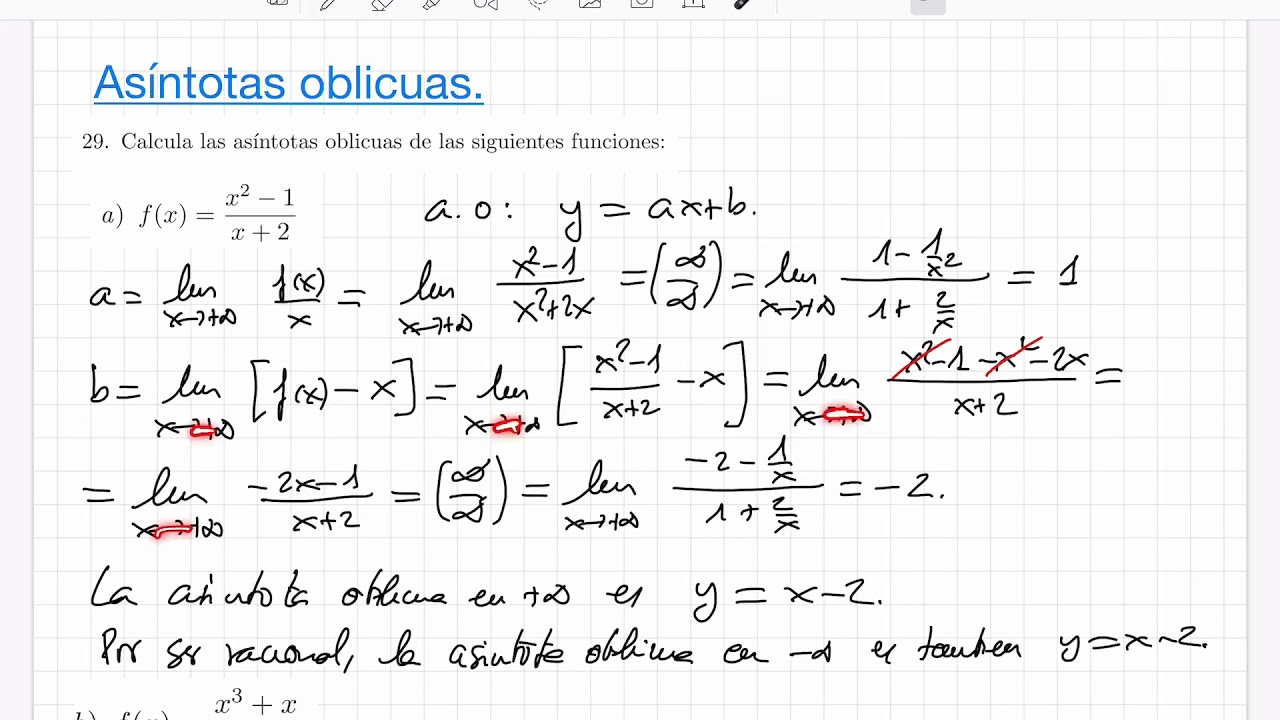 Asíntotas oblicuas.
29. Calcula las asíntotas oblicuas de las siguientes funciones:
a) f(x) = (x² − 1)/(x + 2)    a.o: y = ax+b.
a = lim x→+∞ f(x)/x = lim x→+∞ (x²−1)/(x²+2x) = (∞/∞) = lim x→+∞ (1 − 1/x²)/(1 + 2/x) = 1
b = lim x→+∞ [f(x) − x] = lim x→+∞ [(x²−1)/(x+2) − x] = lim x→+∞ (x²−1−x²−2x)/(x+2) =
= lim x→+∞ (−2x−1)/(x+2) = (∞/∞) = lim x→+∞ (−2 − 1/x)/(1 + 2/x) = −2.
La asíntota oblicua en +∞ es y = x−2.
Por ser racional, la asíntota oblicua en −∞ es también y = x−2.
b) f(x) x³ + x